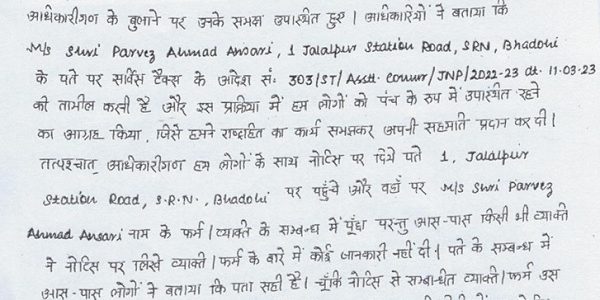 अधिकारीगण के बुलाने पर उनके समक्ष उपस्थित हुए। अधिकारियों ने बताया कि
M/s Shri Parvez Ahmad Ansari, 1 Jalalpur Station Road, SRN, Bhadohi
के पते पर सर्विस टैक्स के आदेश सं: 303/ST/Asstt. Commr/JNP/2022-23 dt. 11.03.23
की तामील करनी है और इस प्रक्रिया में हम लोगों को पंच के रूप में उपस्थित रहने
का आग्रह किया, जिसे हमने राष्ट्रहित का कार्य समझकर अपनी सहमति प्रदान कर दी।
तत्पश्चात् अधिकारीगण हम लोगों के साथ नोटिस पर दिये पते 1, Jalalpur
Station Road, S.R.N., Bhadohi पर पहुँचे और वहाँ पर M/s Shri Parvez
Ahmad Ansari नाम के फर्म/व्यक्ति के सम्बन्ध में पूँछा परन्तु आस-पास किसी भी व्यक्ति
ने नोटिस पर लिखे व्यक्ति/फर्म के बारे में कोई जानकारी नहीं दी। पते के सम्बन्ध में
आस-पास लोगों ने बताया कि पता सही है। चूँकि नोटिस से सम्बन्धित व्यक्ति/फर्म उस